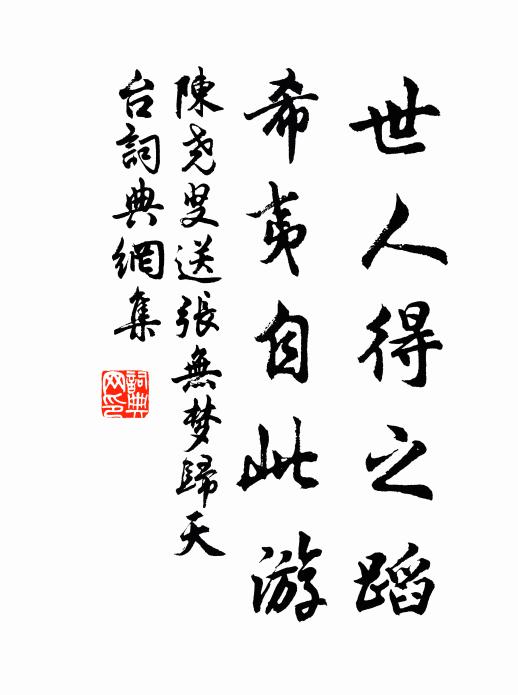 世人得之蹈
希夷自此游
陳尧叟送張無梦歸天
台詞典網集
詞典
网印